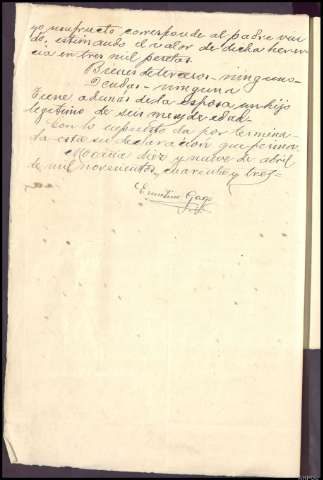 yo usufructo corresponde al padre viu-
do, estimando el valor de dicha heren-
cia en tres mil pesetas.
Bienes de terceros - ninguno -
Deudas - ninguna
Tiene además de la esposa un hijo
legítimo de seis meses de edad -
Con lo expuesto da por termina-
da esta su declaración que firma
diez y nueve de abril
de mil novecientos cuarenta y tres =
Gago